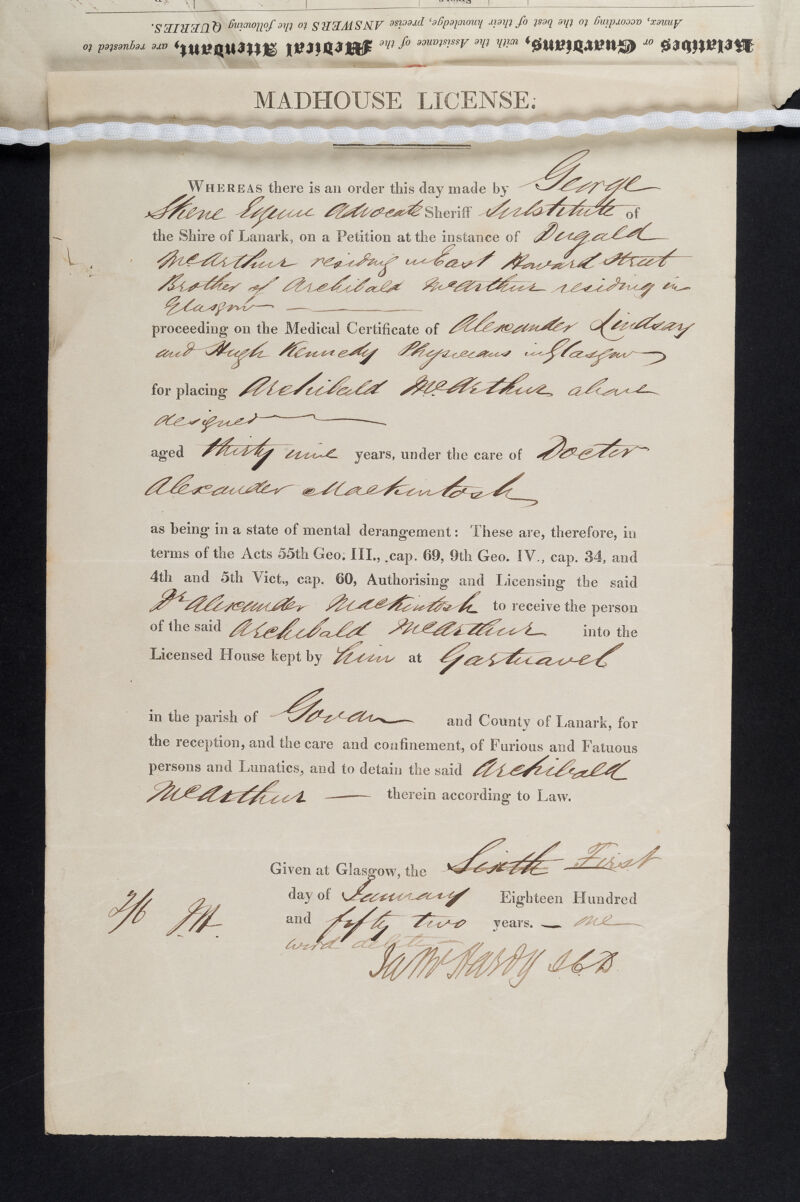 Relatives or Guardians, with the Assistance of the Medical Attendant, are requested to
Annex, according to the best of their knowledge, precise ANSWERS to the following QUERIES.
MADHOUSE LICENSE.
WHEREAS there is an order this day made by George
Skene Esquire Advocate Sheriff Substitute of
the Shire of Lanark, on a Petition at the instance of Dugald
McArthur residing in East Howard Street
Brother of Archibald McArthur residing in
Glasgow
proceeding on the Medical Certificate of Alexander Lindsay
and Hugh Kennedy Physicians in Glasgow
for placing Archibald McArthur above
designed
aged thirty nine years, under the care of Doctor
Alexander Mackintosh
as being in a state of mental derangement: These are, therefore, in
terms of the Acts 55th Geo. III., cap. 69, 9th Geo. IV., cap. 34, and
4th and 5th Vict., cap. 60, Authorising and Licensing the said
Dr Alexander Mackintosh to receive the person
of the said Archibald McArthur into the
Licensed House kept by him at Gartnavel
in the parish of Govan and County of Lanark, for
the reception, and the care and confinement, of Furious and Fatuous
persons and Lunatics, and to detain the said Archibald
McArthur — therein according to Law.
Given at Glasgow, the Sixth First
day of January Eighteen Hundred
and fifty two years. — one
word delete
2/6 JM.
Ja McHardy